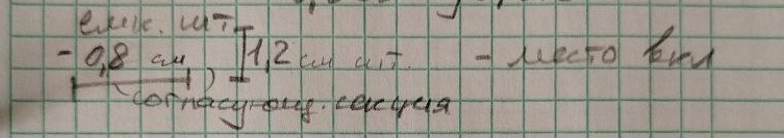 емк. шт.
- 0,8 см, 1,2 см шт. - место вкл
согласующ. секция